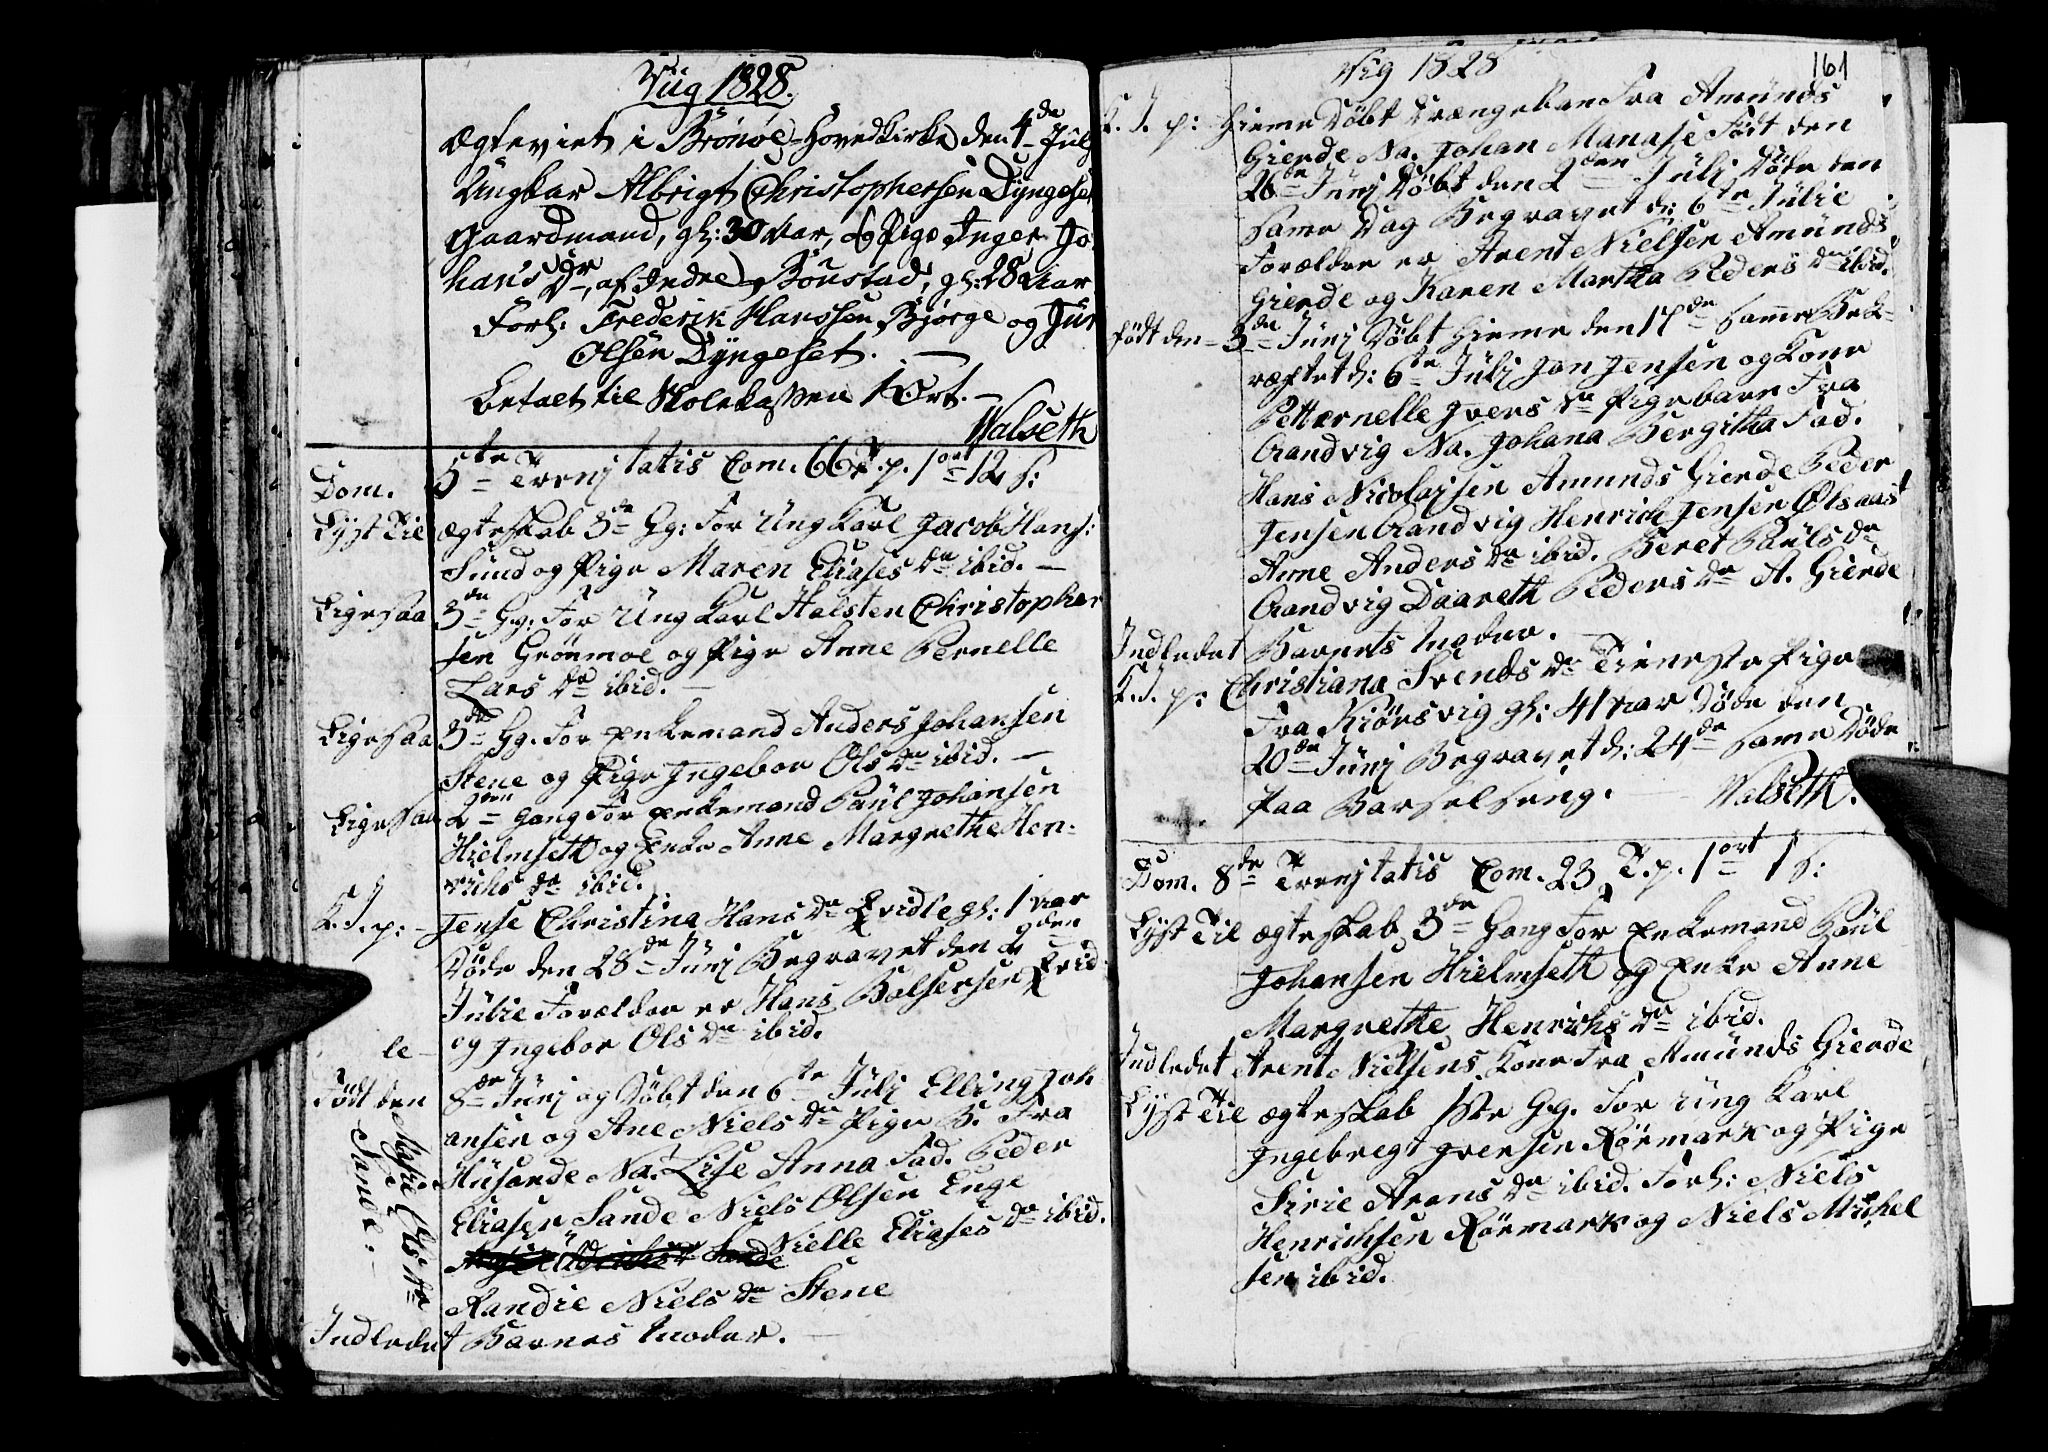 Viig 1828.
Ægteviet i Brönöe Hovedkirke den 4de Julj
Ungkar Albrigt Christophersen Dyngeset
Gaardmand, gl: 30 Aar, og Pige Inger Jo-
hans Dr, af Indre Bönstad, gl: 28 Aar
Forl: Frederik Hanssen Bjørge og
Olsen Dyngeset.
betalt til Skolekassen 1 Ort.
Walseth
Dom. 5te Trenjtatis Com. 66 T. p. 1 ort 12 s:
Lyst Til ægteskab 3de Gg: For Ung Karl Jacob Hans:
Sund og Pige Maren Eliases Dr ibid.
Ligesaa 3de Gg: For Ung Karl Halsten Christopher
sen Grönmoe og Pige Anne Pernelle
Lars Dr ibid.
Ligesaa 3de Gg. For Enkemand Anders Johansen
Stene og Pige Ingebor Ols Dr ibid.
Ligesaa 2den Gang For Enkemand Paül Johansen
Hielmseth og Enke Anne Margrethe Hen-
richs Dr ibid.
K. J. p: Jense Christina Hans Dr Qvidle gl: 1 aar
Døde den 28de Jünj Begravet den 2den
Jülie Forældre er Hans Balsersen Qvid
le og Ingebor Ols Dr ibid.
Født den 8de Jünj og Døbt den 6te Jülj Elling Joh
ansen og Ane Niels Dr Pige B. Fra
Hüsande Na. Lise Anna Fad. Peder
Eliasen Sande Niels Olsen Enge
Nielle Eliases Dr ibid.
Ols Dr Sande.
Randie Niels Dr Stene
Indledet Barnes Moder.
Vig 1828
161
K. J. p: Hieme Døbt Drængebarn Fra Amünds
Gierde Na. Johan Manase Født den
26de Jünj Døbt den 2den Jülj Døde den
Same Dag Begravet d: 6te Jülie
Forældre er Arent Nielsen Amünds
Gierde og Karen Martha Peders Dr ibid.
Født den 3de Jünj Døbt hieme den 17de Same Bek-
ræftet d: 6te Jülj Jon Jensen og Kone
Petternelle Ivers Dr Pigebarn Fra
Grandvig Na. Johana Bergitha Fad.
Hans Nicolajsen Amunds Gierde Peder
Jensen Grandvig Henrich Jensen Olsaas
Anne Anders Dr ibid. Beret Paüls Dr
Grandvig Daareth Peders Dr A. Gierde
Indledet Barnets Moder.
K. J. p: Christiana Svends Dr Tieneste Pige
Fra Kiörsvig gl: 41 aar Døde den
20de Jünj Begravet d: 24de Same Døde
paa Barselseng.
Walseth.
Dom. 8de Trenjtatis Com. 23 T. p. 1 ort 1 s:
Lyst Til ægteskab 3de Gang For Enkemand Paül
Johansen Hielmseth og Enke Anne
Margrethe Henrichs Dr ibid.
Indledet Arent Nielsens Kone Fra Amünds Gierde
Lyst Til ægteskab 1ste Gg. For Ung Karl
Ingebregt Iversen Rörmark og Pige
Sirie Arons Dr ibid. Forl: Niels
Henrichsen Rörmark og Niels Mickel
sen ibid.